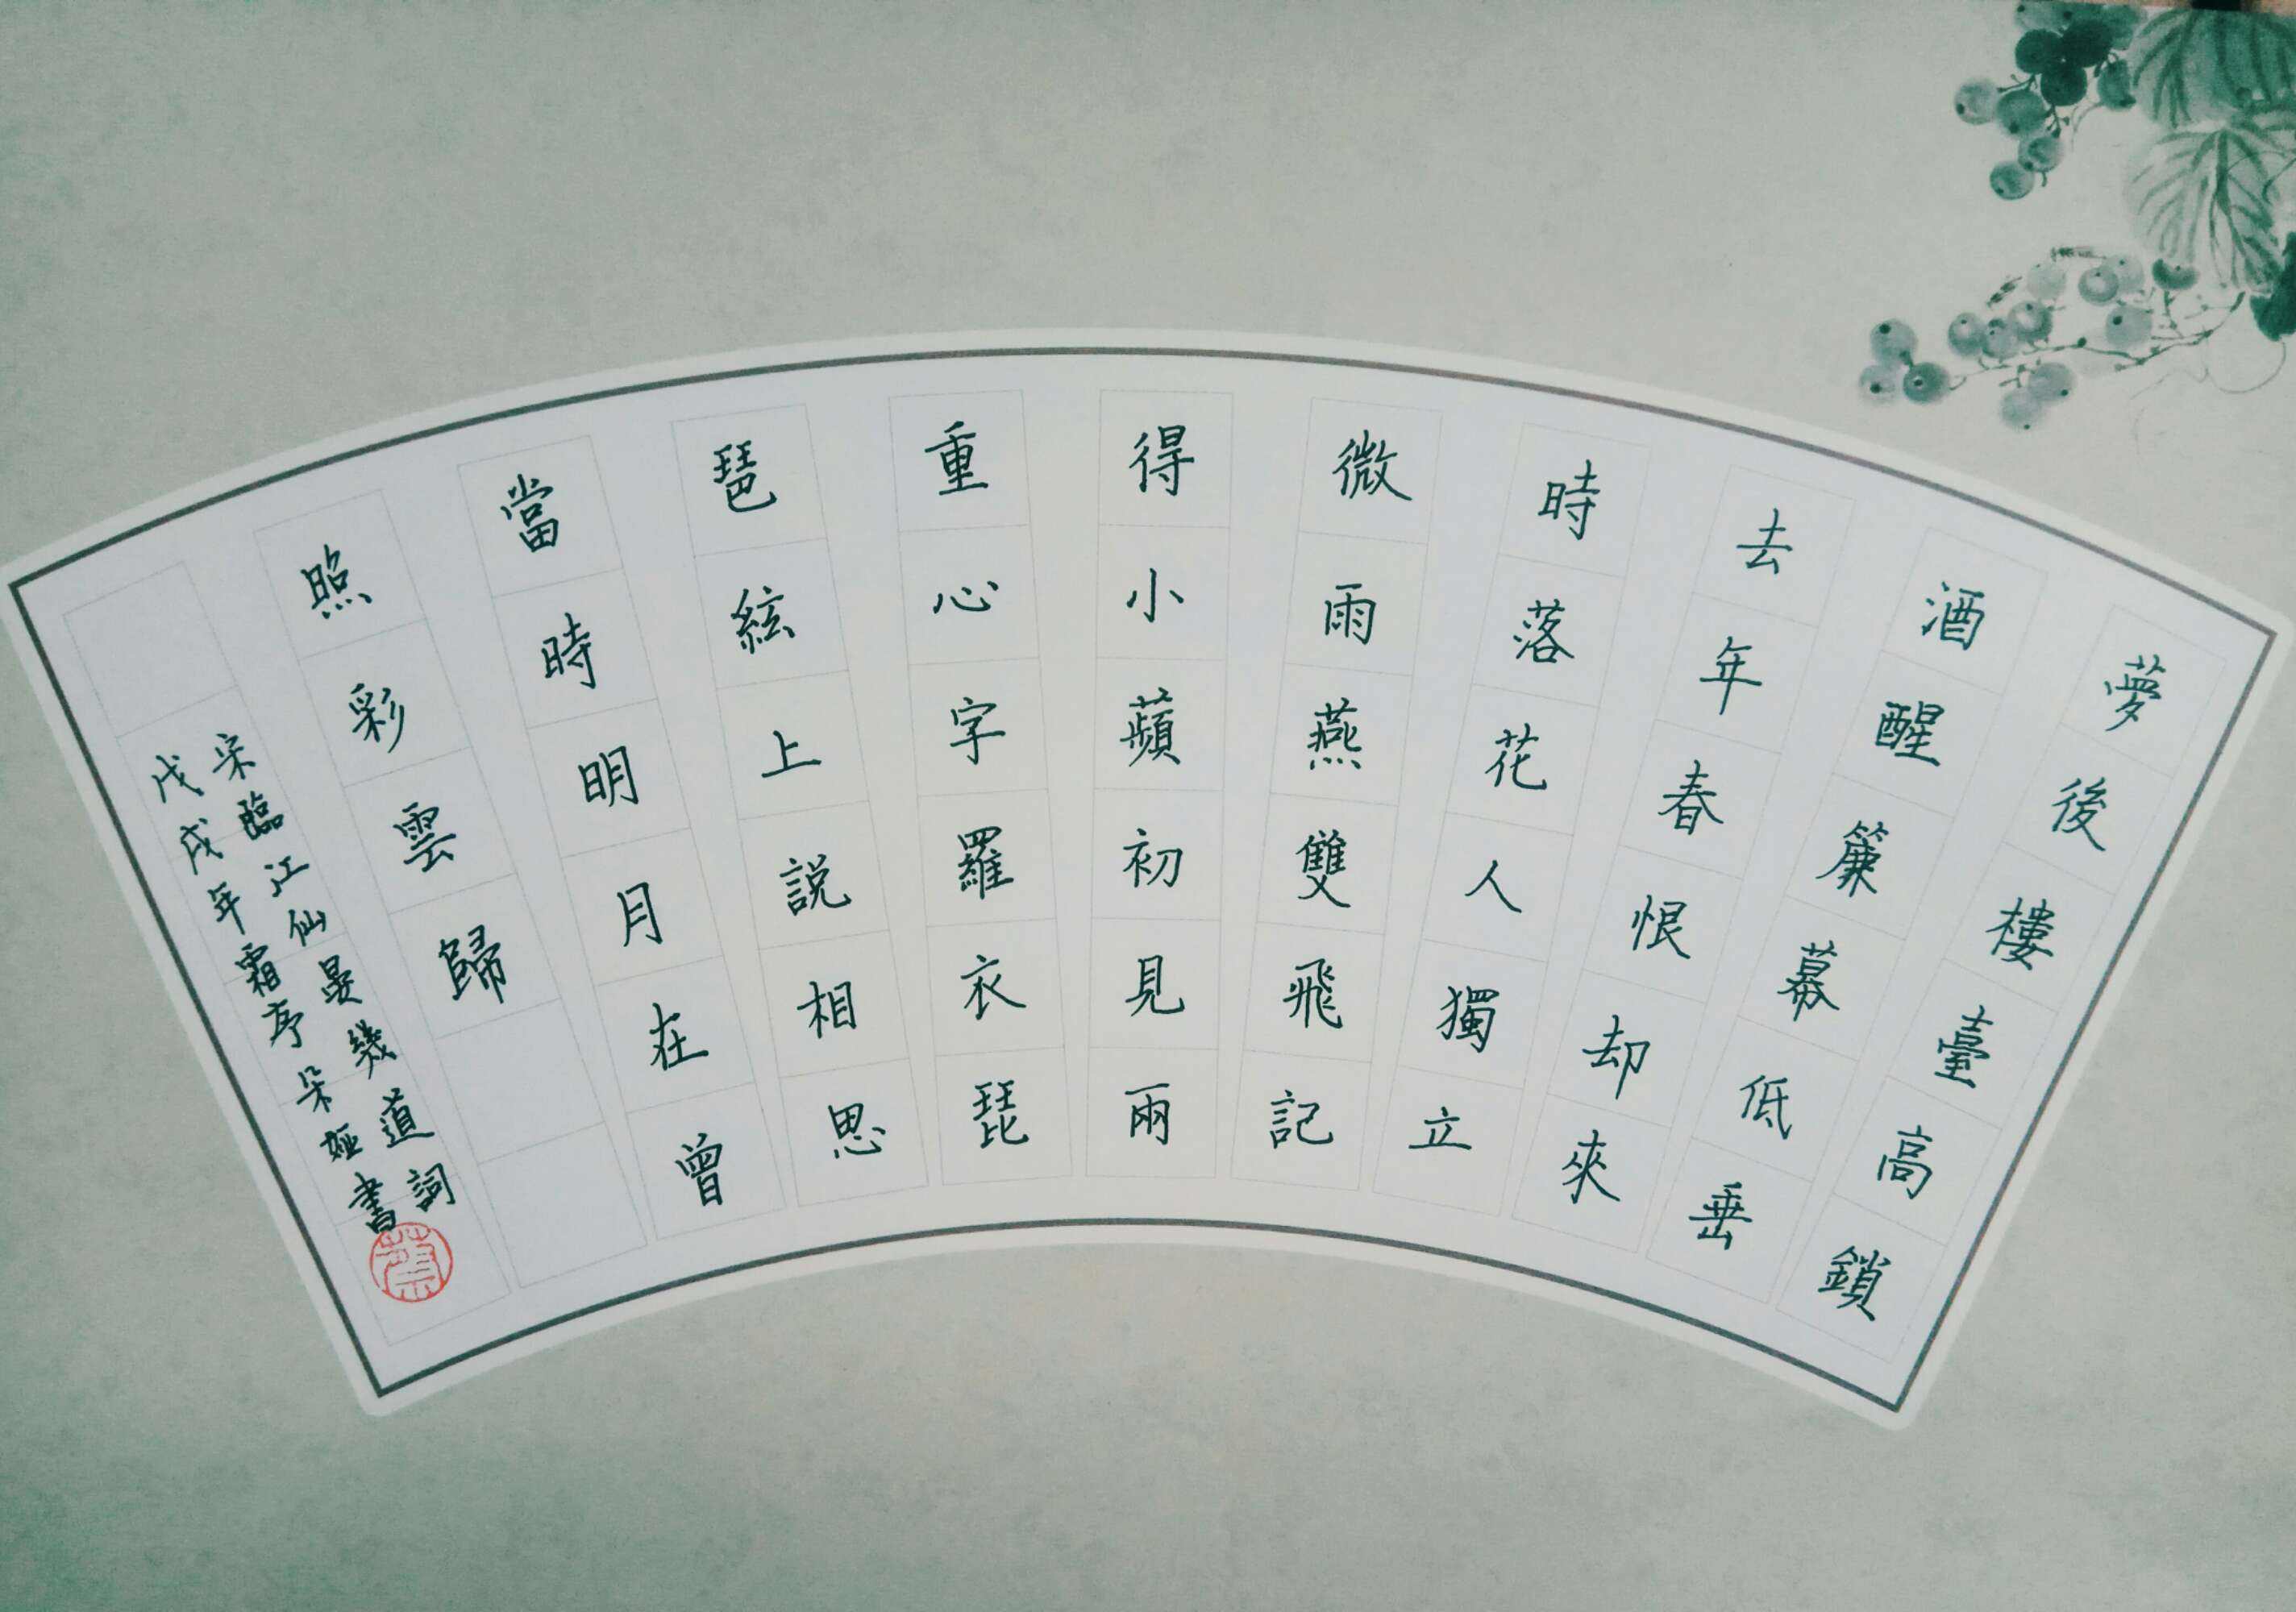 夢後樓臺高鎖
酒醒簾幕低垂
去年春恨却來
時落花人獨立
微雨燕雙飛記
得小蘋初見兩
重心字羅衣琵
琶絃上説相思
當時明月在曾
照彩雲歸
宋臨江仙晏幾道詞
戊戌年霜序朵婭書